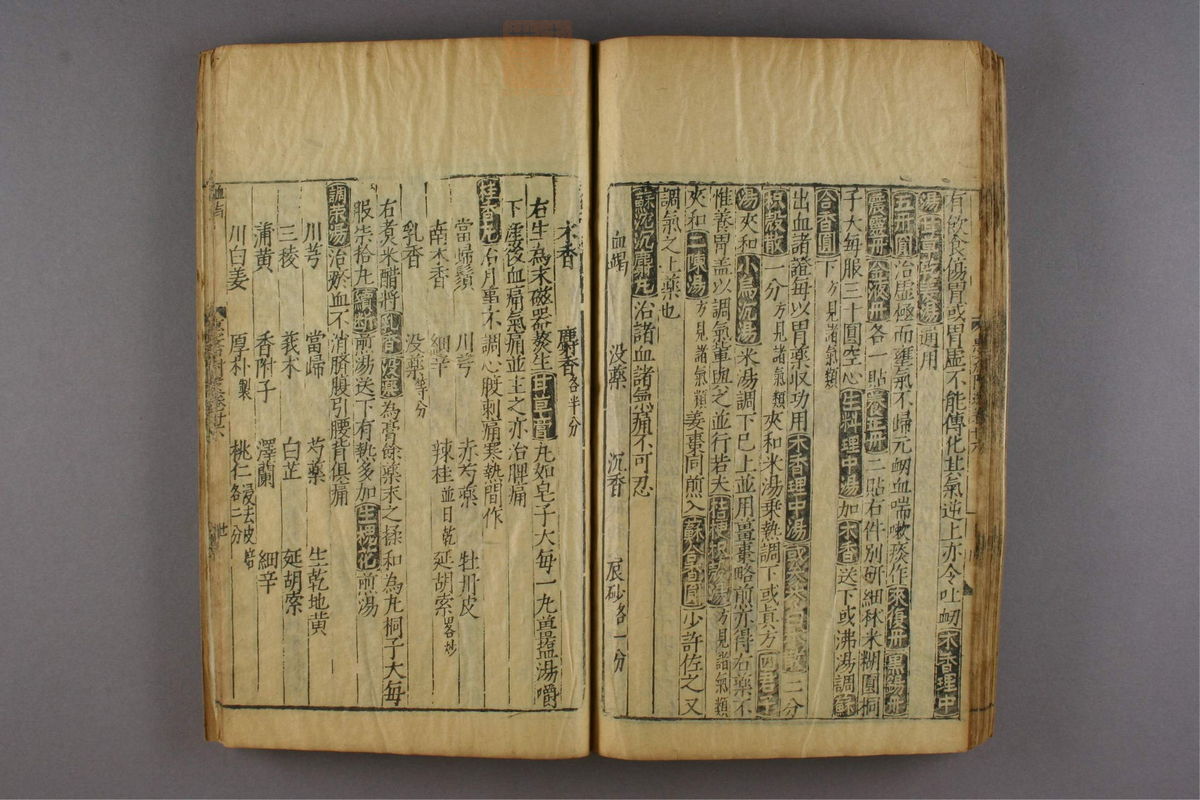 有飲食傷胃或胃虛不能傳化其氣逆上亦令吐衂木香理中
湯甘草乾姜湯通用
五丹圓治虛極而壅氣不歸元衂血喘嗽痰作來復丹黑錫丹
震靈丹金液丹各一貼養正丹二貼右件別研細秫米糊圓桐
子大每服三十圓空心生料理中湯加木香送下或沸湯調蘇
合香圓下方見諸氣類
出血諸證每以胃藥收功用木香理中湯或參苓白朮散二分
枳殼散一分方見諸氣類夾和米湯乗熱調下或真方四君子
湯夾和小烏沉湯米湯調下巳上並用薑棗略煎亦得右藥不
惟養胃盖以調氣輩與之並行若夫桔梗枳殼湯方見諸氣類
夾和二陳湯方見諸氣類姜棗同煎入蘇合香圓少許佐之又
調氣之上藥也
蘇沉沉麝丸治諸血諸氣痛不可忍
血竭 没藥 沉香 辰砂各一分
木香 麝香各半分
右生為末磁器𤋱生甘草膏丸如皂子大每一丸薑塩湯嚼
下產後血痛氣痛並主之亦治脾痛
桂香丸治月事不調心腹刺痛寒熱間作
當歸鬚 川芎 赤芍藥 牡丹皮
南木香 細辛 辣桂並日乾 延胡索略炒
乳香 没藥等分
右煮米醋將乳香没藥為膏餘藥末之揉和為丸桐子大每
服柒拾丸續斷煎湯送下有熱多加生槐花煎湯
調榮湯治瘀血不消臍腹引腰背俱痛
川芎 當歸 芍藥 生乾地黄
三稜 莪朮 白芷 延胡索
蒲黄 香附子 澤蘭 細辛
川白姜 厚朴製 桃仁浸去皮焙各二分